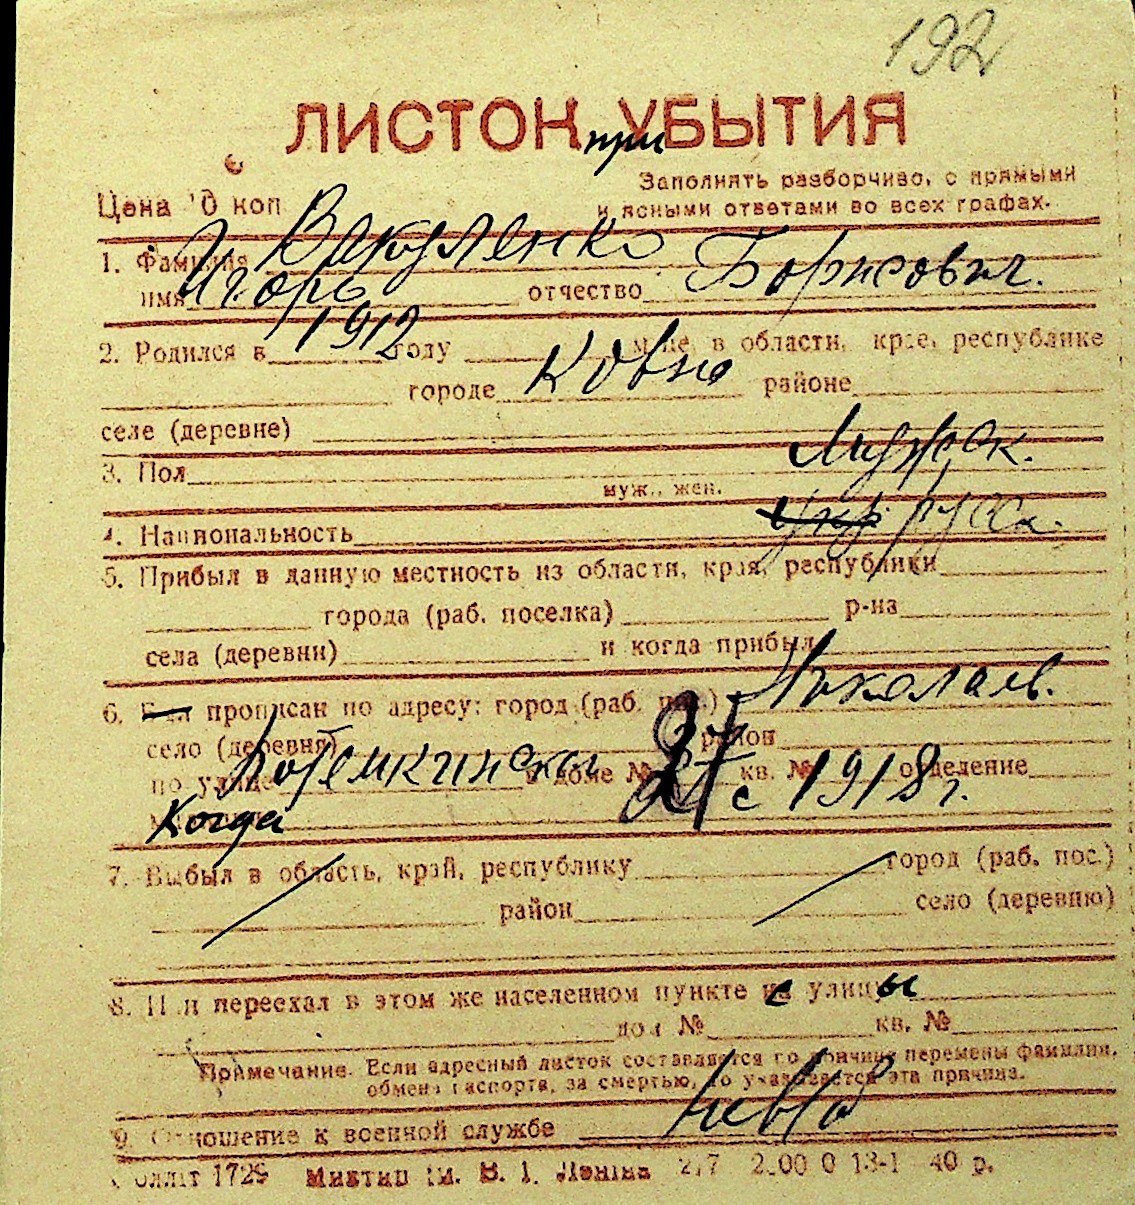 192
ЛИСТОК при УБЫТИЯ
Заполнять разборчиво, с прямыми
Цена 10 коп и ясными ответами во всех графах.
1. Фамилия Вакуленко
имя Игорь отчество Борисович.
2. Родился в 1912 году м-це, в области, крае, республике
городе Ковно районе
селе (деревне)
3. Пол Мужск.
муж., жен.
4. Национальность укр русск.
5. Прибыл в данную местность из области, края, республики
города (раб. поселка) р-на
села (деревни) и когда прибыл
6. Был прописан по адресу: город (раб. пос.) Николаев.
село (деревня) район
по улице Потемкинская в доме № 27 кв. № отделение
Когда с 1918 г.
7. Выбыл в область, край, республику город (раб. пос.)
район село (деревню)
8. Или переехал в этом же населенном пункте с улицы
дом № кв. №
Примечание. Если адресный листок составляется по причине перемены фамилии,
обмена паспорта, за смертью, то указывается эта причина.
9. Отношение к военной службе
1729 им. В. І. Леніна 2.00 0 13-1 40 р.